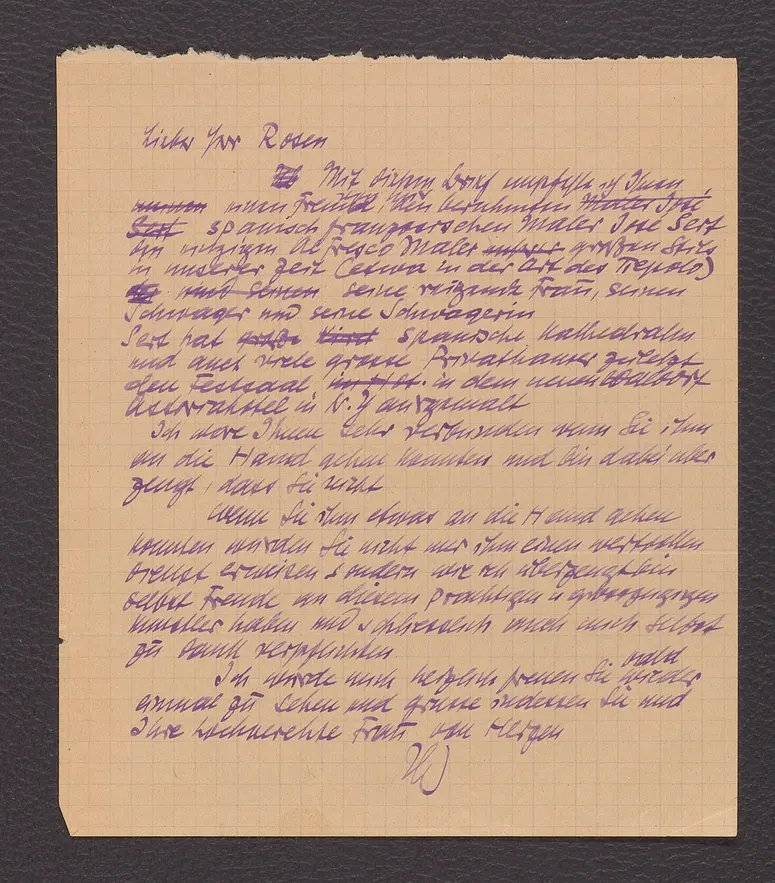 Lieber Herr Rosen
Mit diesem Brief empfehle ich Ihnen
meinen Freund, den berühmten Maler José
Sert spanisch französischen Maler José Sert
den einzigen Al Fresco Maler grossen Stils
in unserer Zeit (etwa in der Art des Tiepolo)
und seinen seine reizende Frau, seinen
Schwager und seine Schwagerin
Sert hat spanische Kathedralen
und auch viele grosse Privathauser zuletzt
den Festsaal in dem neuen Waldorf
Astoriahotel in N.Y ausgemalt
Ich ware Ihnen sehr verbunden wenn Sie ihm
an die Hand gehen konnten und bin dabei uber
zeugt, dass Sie nicht
Wenn Sie ihm etwas an die Hand gehen
konnten wurden Sie nicht nur ihm einen wertvollen
Dienst erweisen sondern wie ich überzeugt bin
selbst Freude an diesem prachtigen u grosszugigen
Kunstler haben und schliesslich auch mich selbst
zu Dank verpflichten
Ich wurde mich herzlich freuen Sie bald wieder
einmal zu sehen und grusse indessen Sie und
Ihre hochverehrte Frau von Herzen